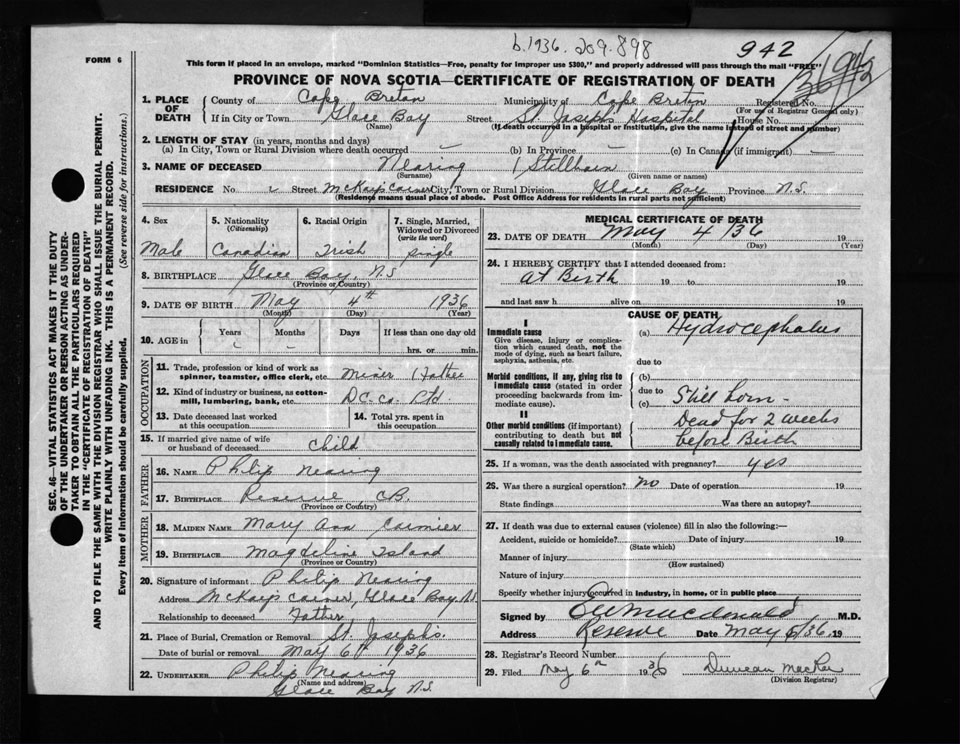 b.1936. 209.898
942
FORM 6
This form if placed in an envelope, marked "Dominion Statistics—Free, penalty for improper use $300," and properly addressed will pass through the mail "FREE"
PROVINCE OF NOVA SCOTIA—CERTIFICATE OF REGISTRATION OF DEATH
1. PLACE OF DEATH
County of Cape Breton Municipality of Cape Breton Registered No.
(For use of Registrar General only)
If in City or Town Glace Bay Street St. Josephs Hospital House No.
(Name) (If death occurred in a hospital or institution, give the name instead of street and number)
2. LENGTH OF STAY (in years, months and days)
(a) In City, Town or Rural Division where death occurred — (b) in Province — (c) in Canada (if immigrant) —
3. NAME OF DECEASED Nearing Stillborn
(Surname) (Given name or names)
RESIDENCE No. Street McKays Corner City, Town or Rural Division Glace Bay Province N.S.
(Residence means usual place of abode. Post Office Address for residents in rural parts not sufficient)
4. Sex
Male
5. Nationality
(Citizenship)
Canadian
6. Racial Origin
Irish
7. Single, Married, Widowed or Divorced
(write the word)
Single
8. BIRTHPLACE Glace Bay, N.S
(Province or Country)
9. DATE OF BIRTH May 4th 1936
(Month) (Day) (Year)
10. AGE in
Years Months Days If less than one day old
hrs. or min.
OCCUPATION
11. Trade, profession or kind of work as
spinner, teamster, office clerk, etc. Miner Father
12. Kind of industry or business, as cotton-
mill, lumbering, bank, etc. D.C.Co. Ltd.
13. Date deceased last worked
at this occupation
14. Total yrs. spent in
this occupation
15. If married give name of wife
or husband of deceased Child
FATHER
16. NAME Philip Nearing
17. BIRTHPLACE Reserve, C.B.
(Province or Country)
MOTHER
18. MAIDEN NAME Mary Ann Cormier
19. BIRTHPLACE Magdeline Island
(Province or Country)
20. Signature of informant Philip Nearing
Address McKays Corner, Glace Bay. N.S
Relationship to deceased Father
21. Place of Burial, Cremation or Removal St. Joseph's.
Date of burial or removal May 6th 1936
22. UNDERTAKER Philip Nearing
(Name and address)
Glace Bay N.S.
MEDICAL CERTIFICATE OF DEATH
23. DATE OF DEATH May 4/36 19
(Month) (Day) (Year)
24. I HEREBY CERTIFY that I attended deceased from:
At Birth 19 to 19
and last saw h alive on 19
CAUSE OF DEATH
I
Immediate cause
Give disease, injury or complica-
tion which caused death, not the
mode of dying, such as heart failure,
asphyxia, asthenia, etc.
(a) Hydrocephalus
due to
Morbid conditions, if any, giving rise to
immediate cause (stated in order
proceeding backwards from im-
mediate cause).
(b)
due to
(c) Still born -
II
Other morbid conditions (if important)
contributing to death but not
causally related to immediate cause.
Dead for 2 weeks
before Birth
25. If a woman, was the death associated with pregnancy? yes
26. Was there a surgical operation? no Date of operation 19
State findings Was there an autopsy?
27. If death was due to external causes (violence) fill in also the following:—
Accident, suicide or homicide? Date of injury 19
(State which)
Manner of injury
(How sustained)
Nature of injury
Specify whether injury occurred in industry, in home, or in public place
Signed by Macdonald M.D.
Address Reserve Date May 6/36 19
28. Registrar's Record Number
29. Filed May 6th 1936 Duncan MacRae
(Division Registrar)
SEC. 46—VITAL STATISTICS ACT MAKES IT THE DUTY
OF THE UNDERTAKER OR PERSON ACTING AS UNDER-
TAKER TO OBTAIN ALL THE PARTICULARS REQUIRED
IN THE "CERTIFICATE OF REGISTRATION OF DEATH"
AND TO FILE THE SAME WITH THE DIVISION REGISTRAR WHO SHALL ISSUE THE BURIAL PERMIT.
WRITE PLAINLY WITH UNFADING INK. THIS IS A PERMANENT RECORD.
Every item of information should be carefully supplied. (See reverse side for instructions.)